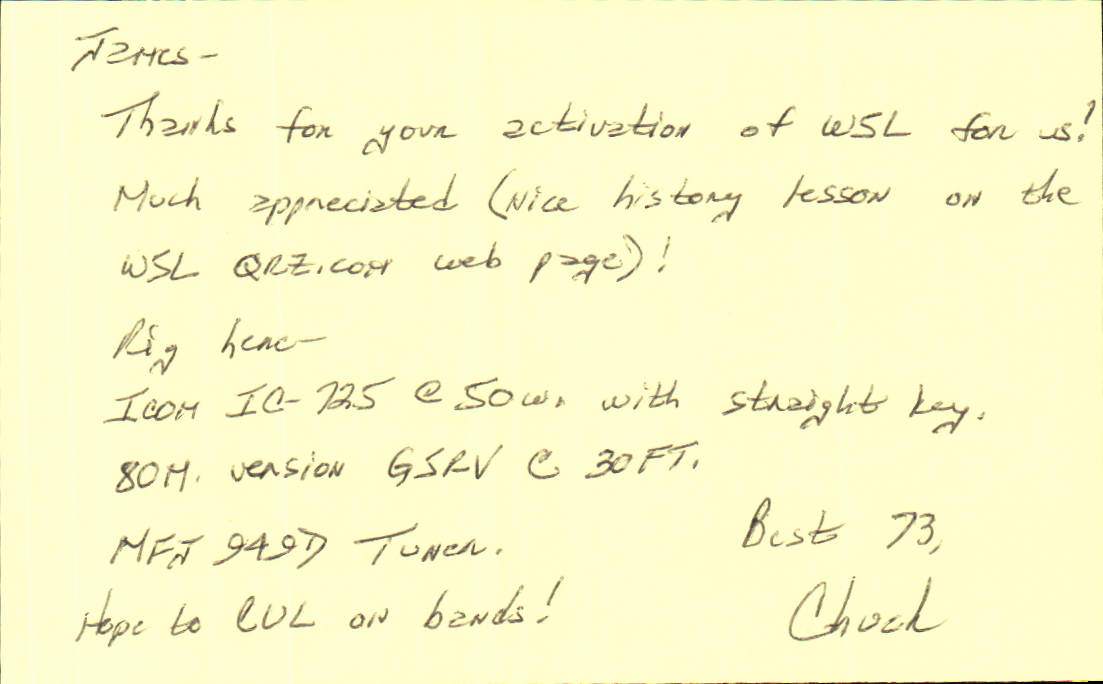 James-
Thanks for your activation of WSL for us!
Much appreciated (Nice history lesson on the
WSL QRZ.com web page)!
Rig here-
ICOM IC-725 @ 50w. with straight key.
80M. version G5RV @ 30FT.
MFJ 949D Tuner.
Best 73,
Hope to CUL on bands!
Chuck